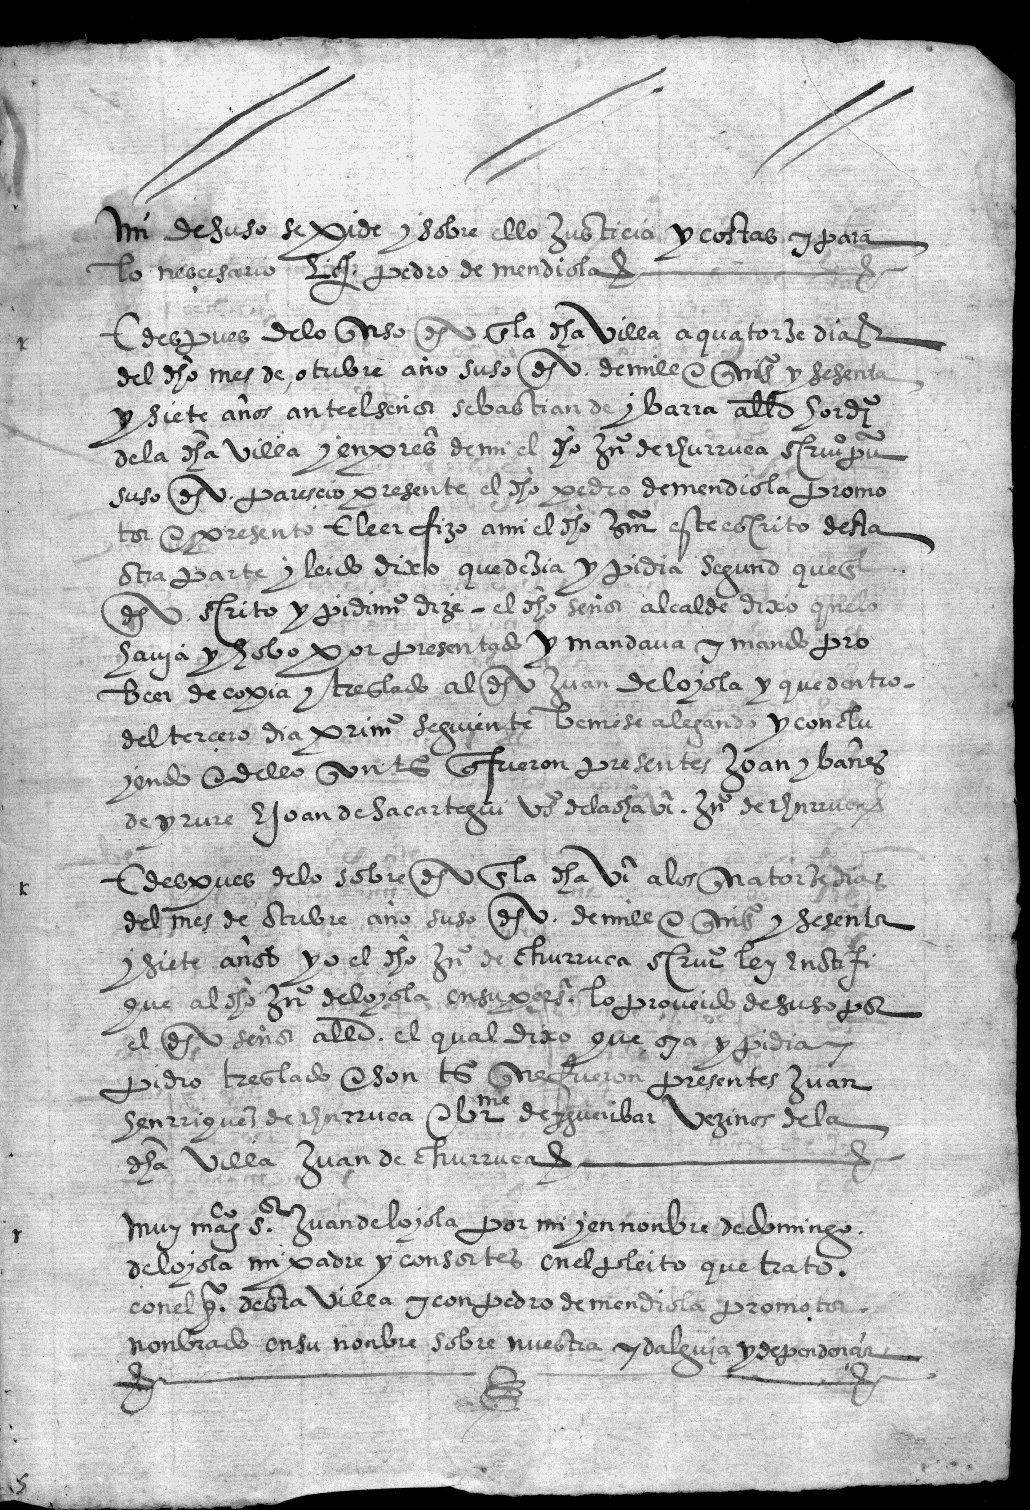 mi de suso se pide y sobre ello Justicia y costas y para
lo nescesario pedro de mendiola
E despues de lo suso dho en la dha Villa a quatorze dias
del dho mes de otubre año suso dho. de mill e quis y sesenta
y siete años ante el señor sebastian de ybarra alld hordio
de la dha Villa y en pres de mi el dho Jn de churruca scriuo pu
suso dho. parescio presente el dho pedro de mendiola promo
tor e presento E leer fizo a mi el dho scriu este escrito desta
otra parte y leido dixo que dezia y pidia segund que en el
dho scrito y pidimio dize - el dho señor alcalde dixo que lo
havia y hobo por presentado y mandava y mando pro
beer de copia y treslado al dho Juan de loyola y que dentro
del tercero dia primo seguiente beniese alegando y conclu
yendo e dello son ts que fueron presentes Joan ybañes
de yrure y Joan de sacartegui vos de la dha vi. Jn de churruca
E despues de lo sobre dho en la dha vi a los quatorze dias
del mes de otubre año suso dho. de mill e quis y sesenta
y siete años yo el dho Jn de churruca scriuo ley e notifi
que al dho Jn de loyola en su pers. lo proueido de suso por
el dho señor alld. el qual dixo que oya y pidia y
pidio treslado e son ts que fueron presentes Juan
henrriquez de churruca e br me de eguuibar Vezinos de la
dha Villa Juan de churruca
muy mag s.or Juan de loyola por mi y en nonbre de domingo
de loyola mi padre y consortes en el pleito que trato.
con el desta Villa y con pedro de mendiola promotor
nonbrado en su nonbre sobre nuestra ydalguia y dependencias
5